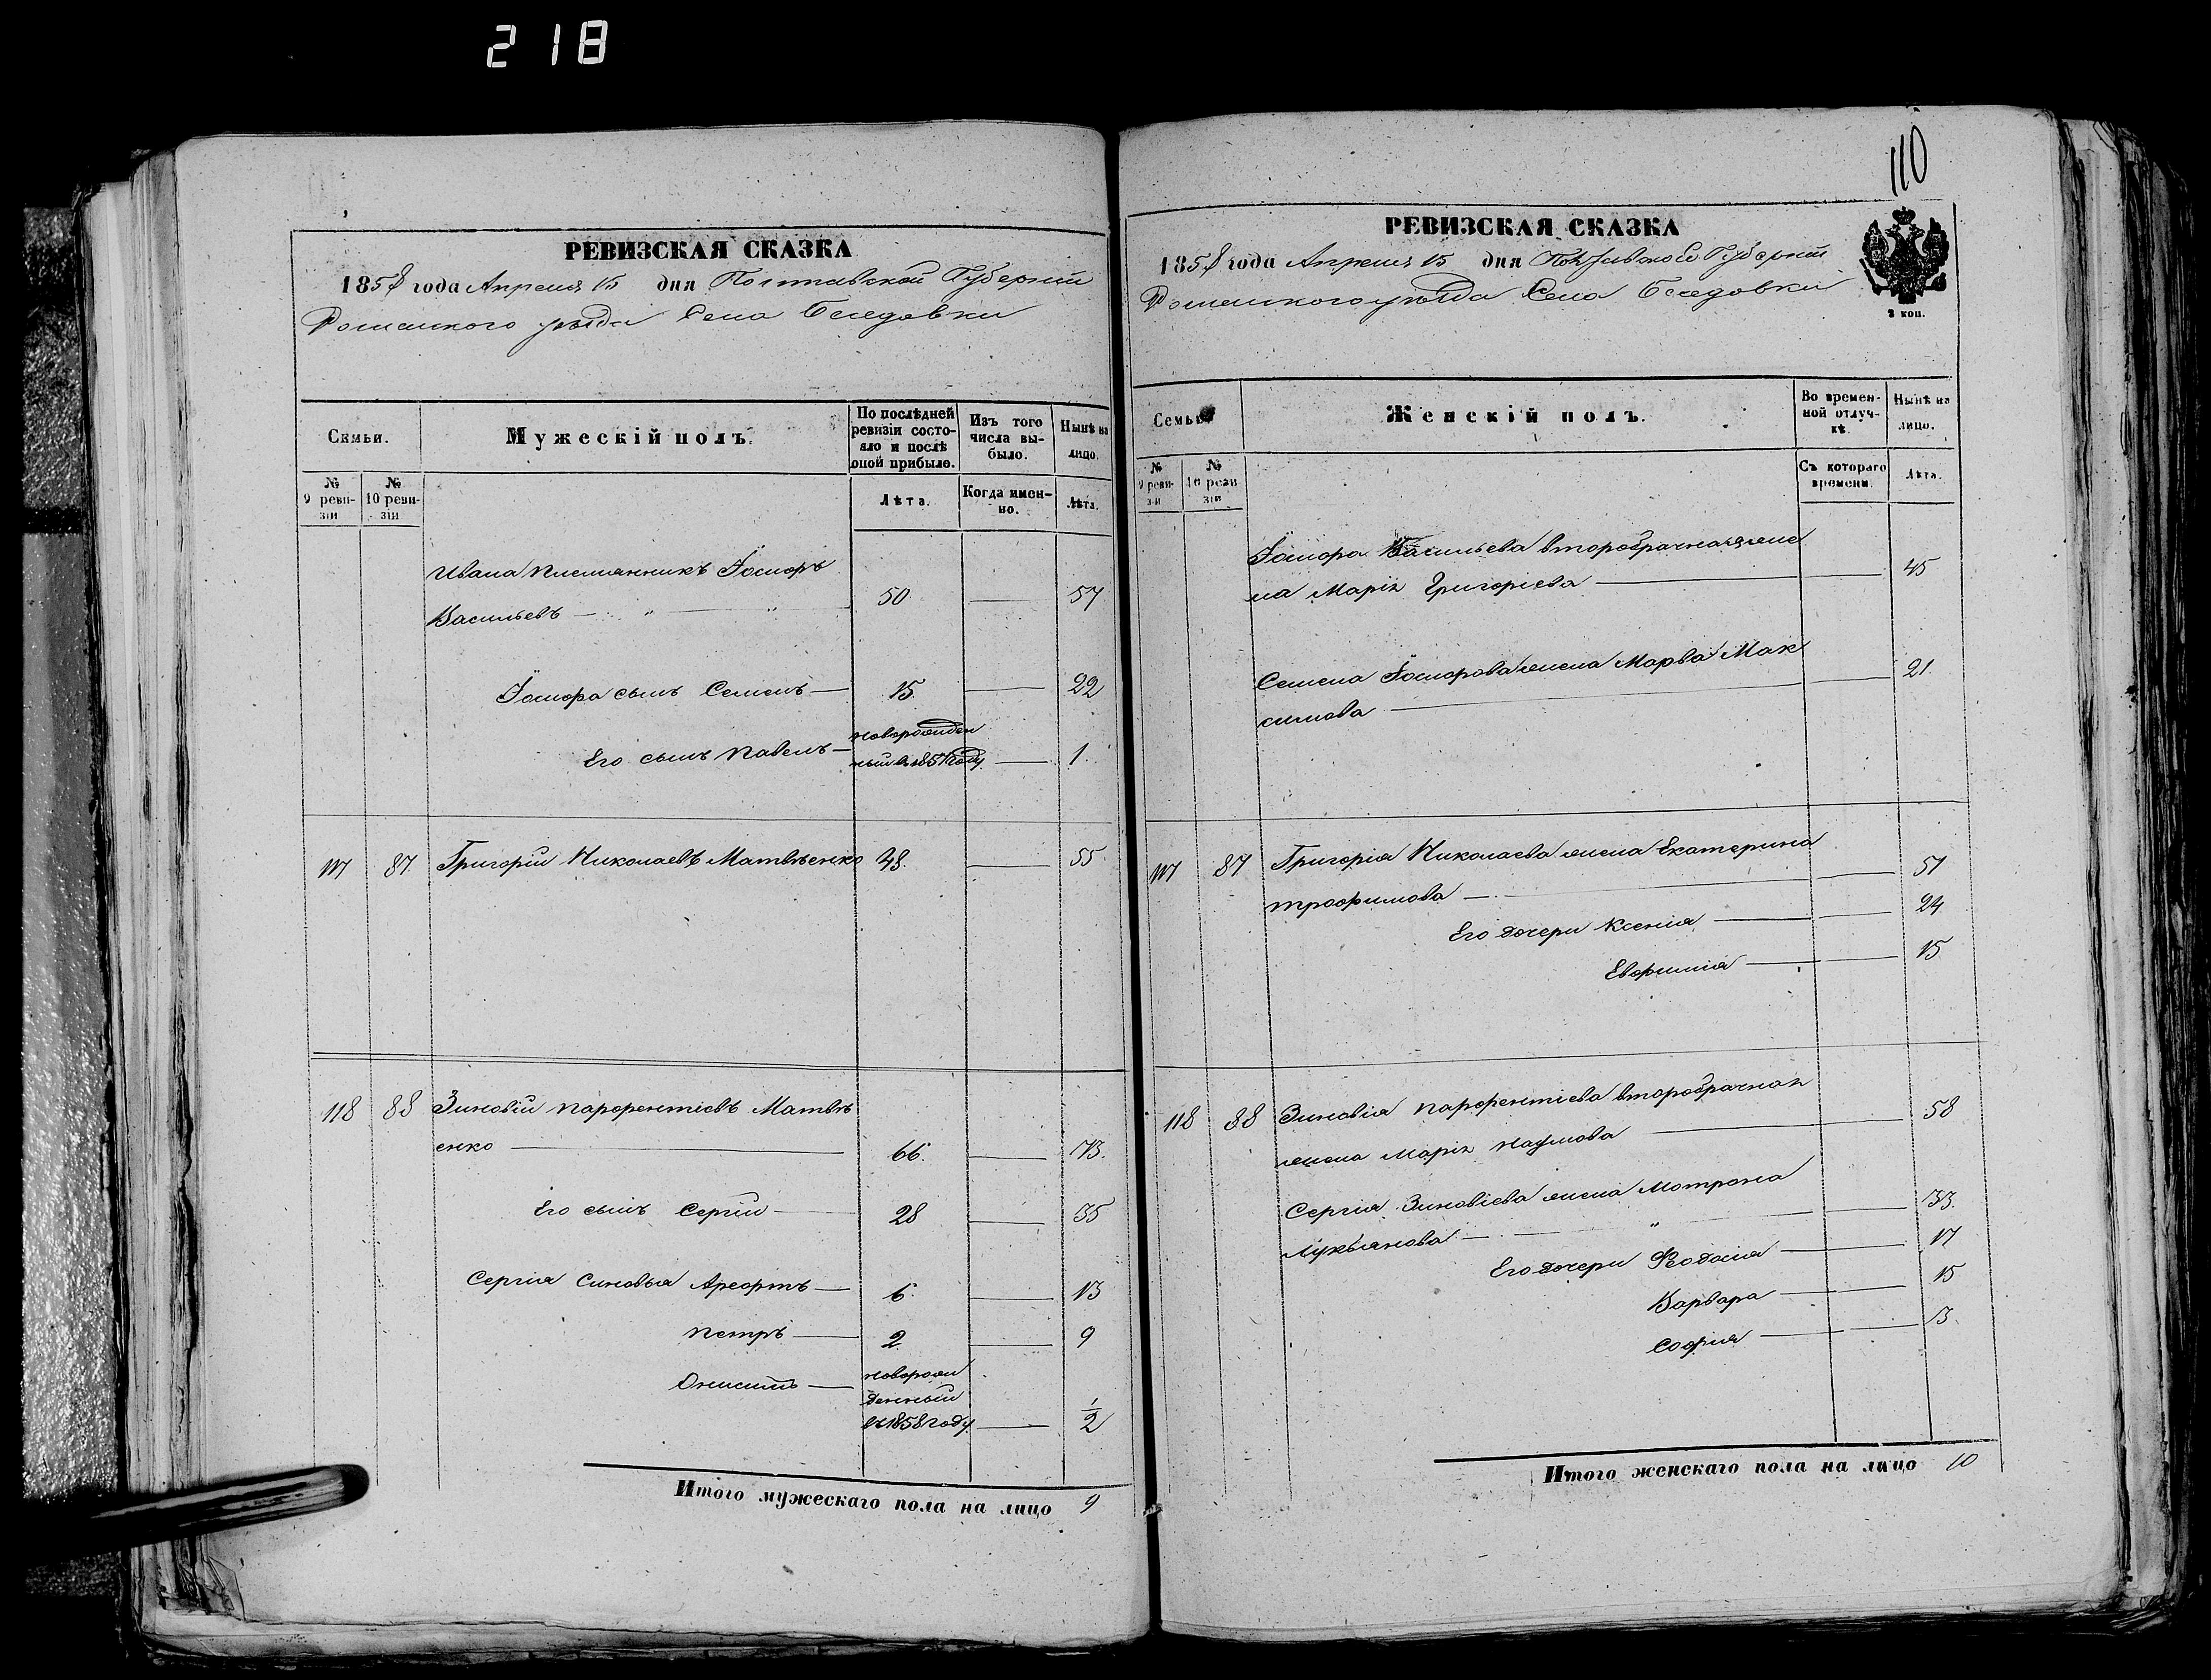 218
РЕВИЗСКАЯ СКАЗКА
1858 года Апреля 15 дня Полтавской Губерніи
Роменского уезда Села Беседовки
Семьи.
Мужескій полъ.
По послѣдней ревизіи состояло и послѣ оной прибыло.
Изъ того числа выбыло.
Нынѣ на лицо.
№ 9 ревизіи
№ 10 ревизіи
Лѣта.
Когда именно.
Лѣта.
Ивана племянникъ Іосифъ
Васильевъ — " — " 50 — 57
Іосифа сынъ Семенъ — 15 — 22
Его сынъ Павелъ — новорожден
ный в 1857 году — 1
117 87 Григорій Николаевъ Матвѣенко 48. — 55
118 88 Зиновій Парфентіевъ Матвѣ
енко — 66. — 73.
Его сынъ Сергій — 28 — 35
Сергія синовья Ареѳтъ — 6 — 13
Петръ — 2 — 9
Онисимъ — новорож
денный
въ 1858 году — 1/2
Итого мужескаго пола на лицо 9
110
РЕВИЗСКАЯ СКАЗКА
1858 года Апреля 15 дня Полтавской Губерніи
Роменского уѣзда Села Беседовки
2 коп.
Семьи
Женскій полъ.
Во временной отлучкѣ.
Нынѣ на лицо.
№ 9 ревизіи
№ 10 ревизіи
Съ котораго времени.
Лѣта.
Іосифа Васильева второбрачная жена
на Марія Григоріева — 45
Семена Іосифова жена Марѳа Мак
симова — 21.
117 87 Григорія Николаева жена Екатерина
Трофимова — 51
Его дочери Ксенія — 24
Евфимія — 15
118 88 Зиновія Парфентіева второбрачная
жена Марія Наумова — 58
Сергія Зиновіева жена Мотрона
Лукьянова — " — 33.
Его дочери Ѳеодосія — 17
Варвара — 15
Софія — 13.
Итого женскаго пола на лицо 10